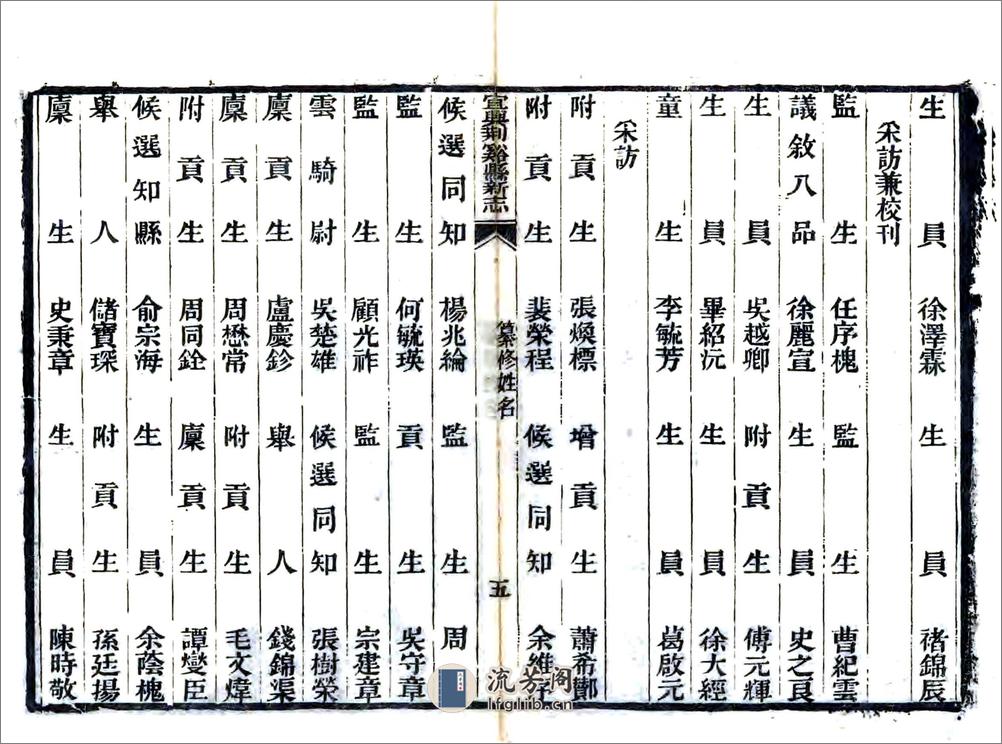 生員 徐澤霖 生員 褚錦辰
采訪兼校刊
監生 任序槐 監生 曹紀雲
議敘八品 徐麗宣 生員 史之良
生員 吳越卿 附貢生 傅元輝
生員 畢紹沅 生員 徐大經
童生 李毓芳 童生 葛啟元
采訪
附貢生 張煥標 增貢生 蕭希酇
附貢生 裴榮程 候選同知 余維
宜興荊谿縣新志 纂修姓名 五
候選同知 楊兆綸 監生 周
監生 何毓瑛 貢生 吳守章
監生 顧光祚 監生 宗建章
雲騎尉 吳楚雄 候選同知 張樹榮
廩生 盧慶鈖 舉人 錢錦渠
廩貢生 周懋常 附貢生 毛文煒
附貢生 周同銓 廩貢生 譚燮臣
候選知縣 俞宗海 生員 余蔭槐
舉人 儲寶琛 附貢生 孫廷揚
廩生 史秉章 生員 陳時敬
流芳閣
lfglib.cn